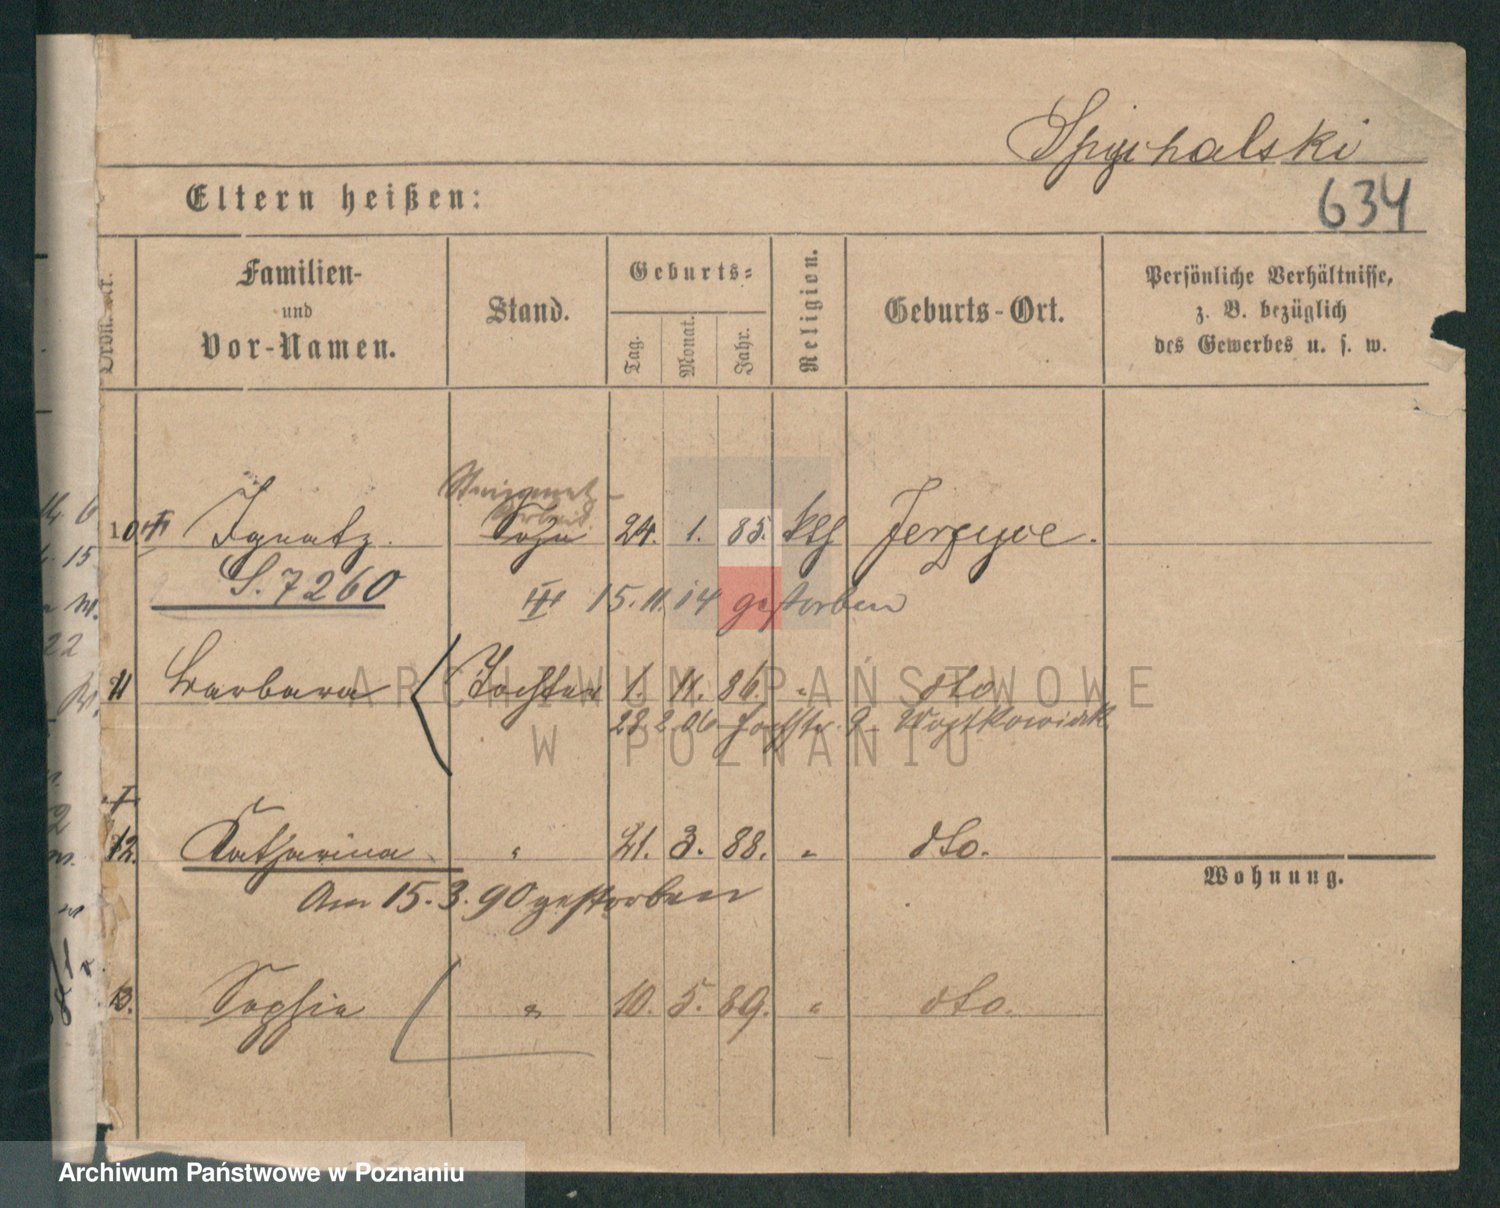 Spychalski
634
Eltern heißen:
Ordn. Nr.
Familien-
und
Vor-Namen.
Stand.
Geburts-
Tag.
Monat.
Jahr.
Religion.
Geburts-Ort.
Persönliche Verhältnisse,
z. B. bezüglich
des Gewerbes u. s. w.
10 Ignatz Sohn 24. 1. 85. kth Jerzyce.
S. 7260
15. 11. 14 gestorben
11 Barbara Tochter 1. 11. 86. " dto
28 2 06 9 Woytkowiak
12. Katharina " 21. 3. 88. " dto.
Am 15. 3. 90 gestorben
Wohnung.
13. Sophie " 10. 5. 89. " dto.
ARCHIWUM PAŃSTWOWE
W POZNANIU
Archiwum Państwowe w Poznaniu